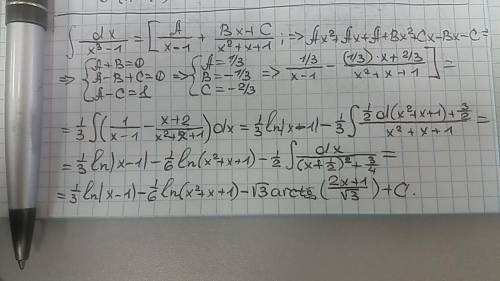 ∫ dx/(x³-1) = [A/(x-1) + (Bx+C)/(x²+x+1); => Ax²+Ax+A+Bx²+Cx-Bx-C =
=> {A+B=0; A-B+C=0; A-C=1 => {A=1/3; B=-1/3; C=-2/3 => (1/3)/(x-1) - ((1/3)·x+2/3)/(x²+x+1)] =
= 1/3 ∫(1/(x-1) - (x+2)/(x²+x+1))dx = 1/3 ln|x-1| - 1/3 ∫ (1/2 d(x²+x+1)+3/2)/(x²+x+1) =
= 1/3 ln|x-1| - 1/6 ln(x²+x+1) - 1/2 ∫ dx/((x+1/2)²+3/4) =
= 1/3 ln|x-1| - 1/6 ln(x²+x+1) - √3 arctg((2x+1)/√3) + C.